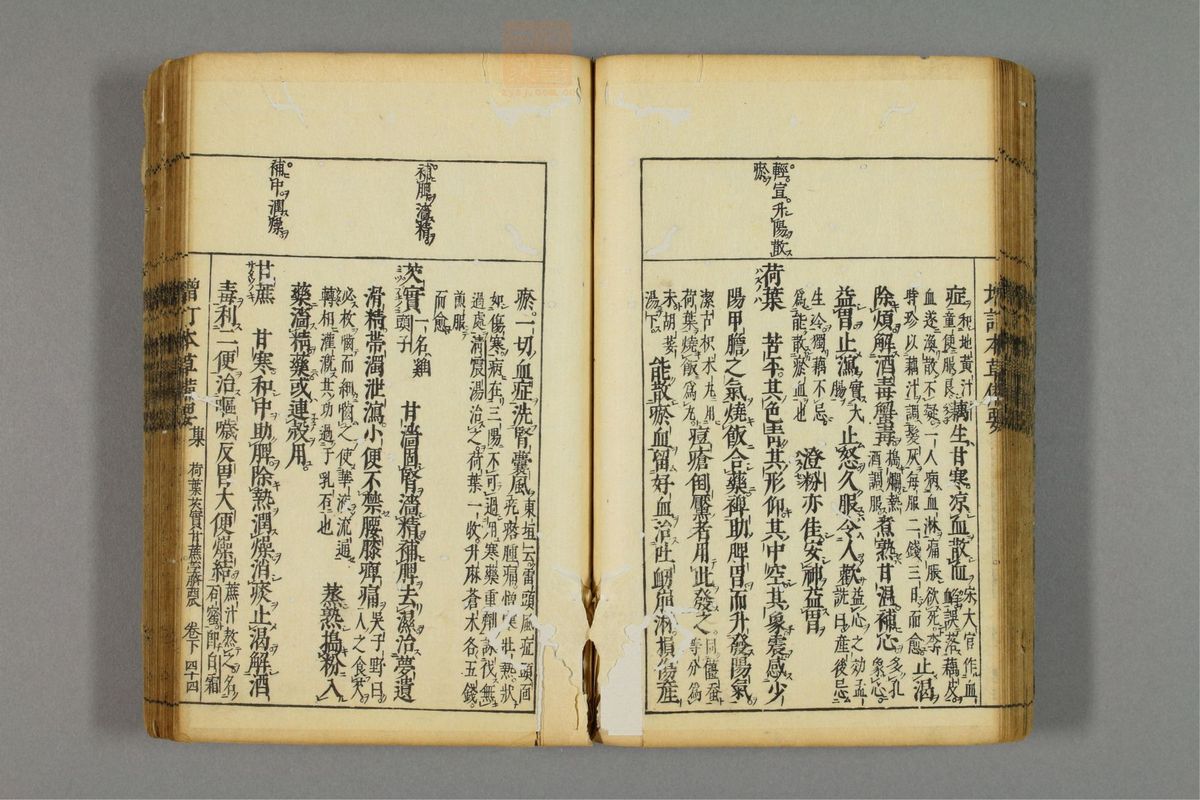 輕宣升陽散
瘀
增訂本草備要
症和地黃汁童便服良藕生甘寒涼血散血宋大官作血䘓誤落藕皮
血遂渙散不凝一人病血淋痛脹欲死李時珍以藕汁調髮灰每服二錢三日而愈止渴
除煩解酒毒蟹毒搗爛熱酒調服煮熟甘温補心多孔象心
益胃止瀉實大腸止怒久服令人歡益心之効孟詵曰產後忌
生冷獨藕不忌爲能散瘀血也澄粉亦佳安神益胃
荷葉 苦平其色青其形仰其中空其象震感少
陽甲膽之氣燒飯合藥裨助脾胃而升發陽氣
潔古枳朮丸用荷葉燒飯爲丸痘瘡倒黶者用此發之同僵蠶等分爲
末胡荽湯下能散瘀血留好血治吐衄崩淋損傷產
補脾濇精
補中潤燥
瘀一切血症洗腎囊風東垣云雷頭風症頭面疙瘩腫痛憎寒壯熱狀
如傷寒病在三陽不可過用寒藥重劑誅伐無過處清震湯治之荷葉一枚升麻蒼朮各五錢
煎服而愈
芡實一名雞頭子 甘濇固腎濇精補脾去濕治夢遺
滑精帶濁泄瀉小便不禁腰膝痹痛吳子野曰人之食芡
必枚嚙而細嚼之使華液流通轉相灌溉其功過于乳石也蒸熟搗粉入
藥濇精藥或連殼用
甘蔗 甘寒和中助脾除熱潤燥消痰止渴解酒
毒利二便治嘔噦反胃大便燥結蔗汁熬之名石蜜即白霜
增訂本草備要 集 荷葉芡實甘蔗荸薺西瓜 卷下 四十四